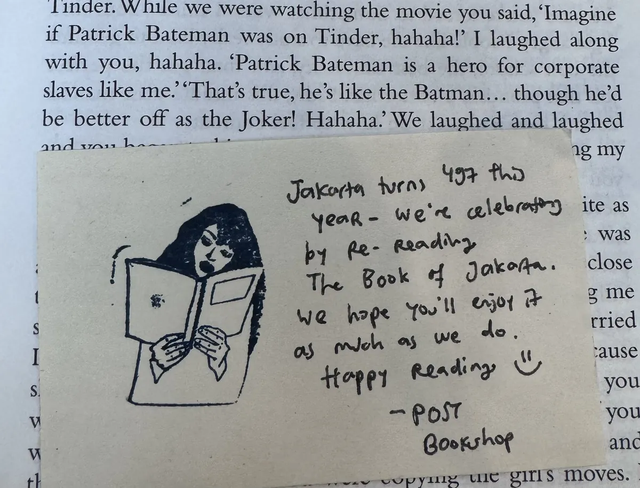 Tinder. While we were watching the movie you said, ‘Imagine
if Patrick Bateman was on Tinder, hahaha!’ I laughed along
with you, hahaha. ‘Patrick Bateman is a hero for corporate
slaves like me.’ ‘That’s true, he’s like the Batman… though he’d
be better off as the Joker! Hahaha.’ We laughed and laughed
and you
ng my
Jakarta turns 497 this
year - we're celebrating
by Re-Reading
The Book of Jakarta.
We hope you'll enjoy it
as much as we do.
Happy Reading ☺
- POST
Bookshop
ite as
was
close
g me
rried
cause
you
you
and
copying the girl’s moves.